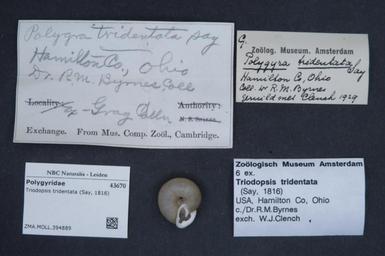 Polygyra tridentata Say
Hamilton Co., Ohio
Dr. R.M. Byrnes Coll
Locality: ex - Gray Colln Authority:
Exchange. From Mus. Comp. Zoöl., Cambridge.
Zoölog. Museum. Amsterdam
Polygyra tridentata Say
Hamilton Co, Ohio
Coll. W R.M. Byrnes
geruild met Clench 1929
NBC Naturalis - Leiden
Polygyridae 43670
Triodopsis tridentata (Say, 1816)
ZMA.MOLL.394889
Zoölogisch Museum Amsterdam
6 ex.
Triodopsis tridentata
(Say, 1816)
USA, Hamilton Co, Ohio
c./Dr.R.M.Byrnes
exch. W.J.Clench